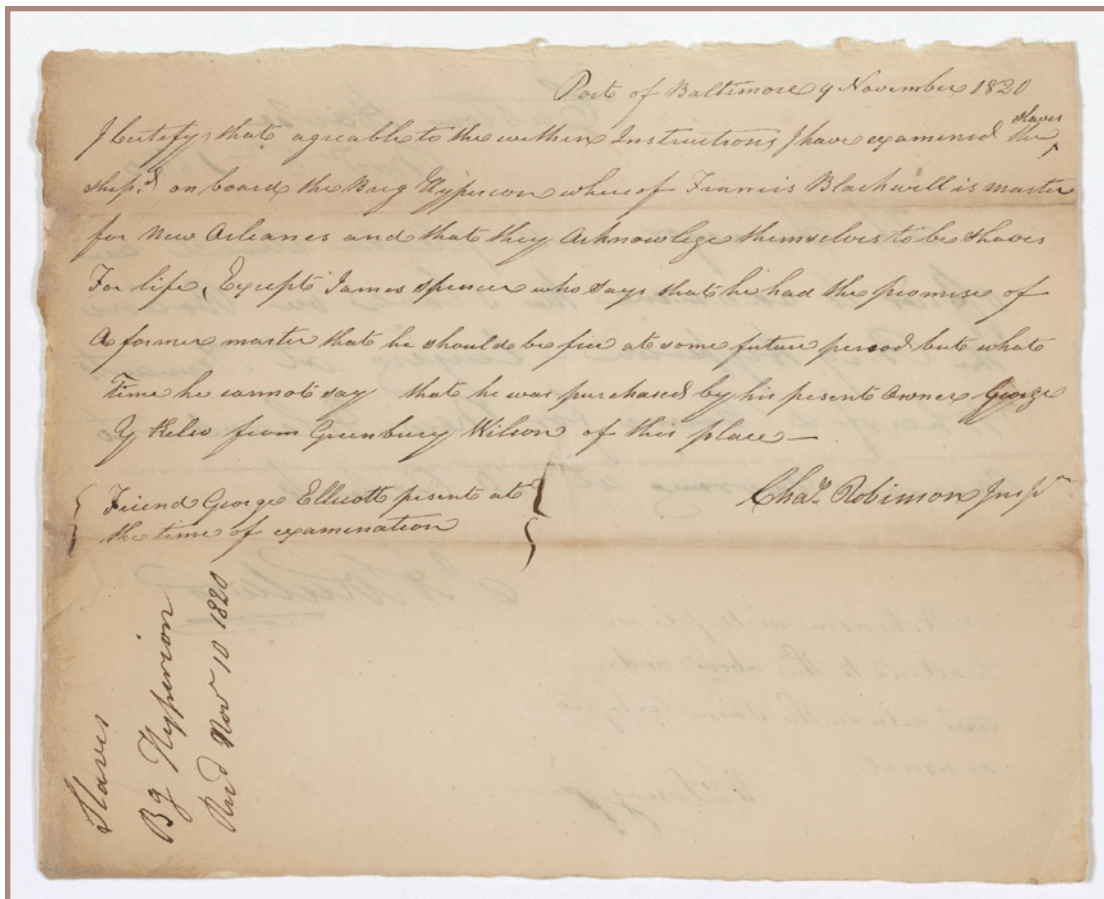 Port of Baltimore 9 November 1820
I Certify that agreable to the within Instructions I have examined the slaves
ship.d on board the Brig Hyperion where of Francis Blackwell is master
for New Orleanes and that they Acknowlege themselves to be slaves
For life, Except James Spencer who says that he had the promise of
A former master that he should be free at some future period but what
Time he cannot say that he was purchased by his present Owner George
Y Kelso from Greenbury Wilson of this place —
Chas. Robinson Inspr
Friend George Ellicott present at
the time of examination
Slaves
Bg Hyperion
Recd Nov 10 1820